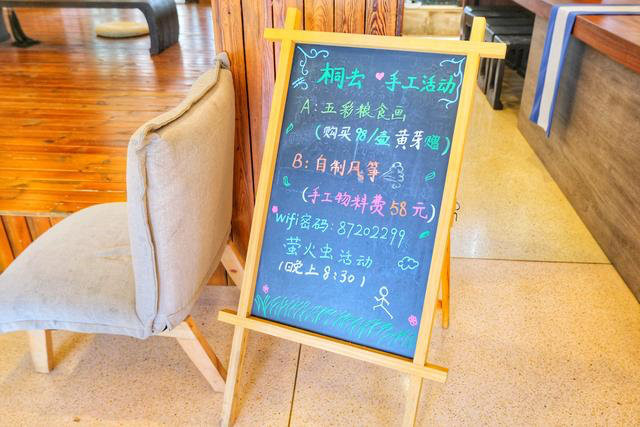 桐去 手工活动
A:五彩粮食画
(购买98/壶黄芽)
B:自制风筝
(手工物料费58元)
wifi密码:87202299
萤火虫活动
(晚上8:30)